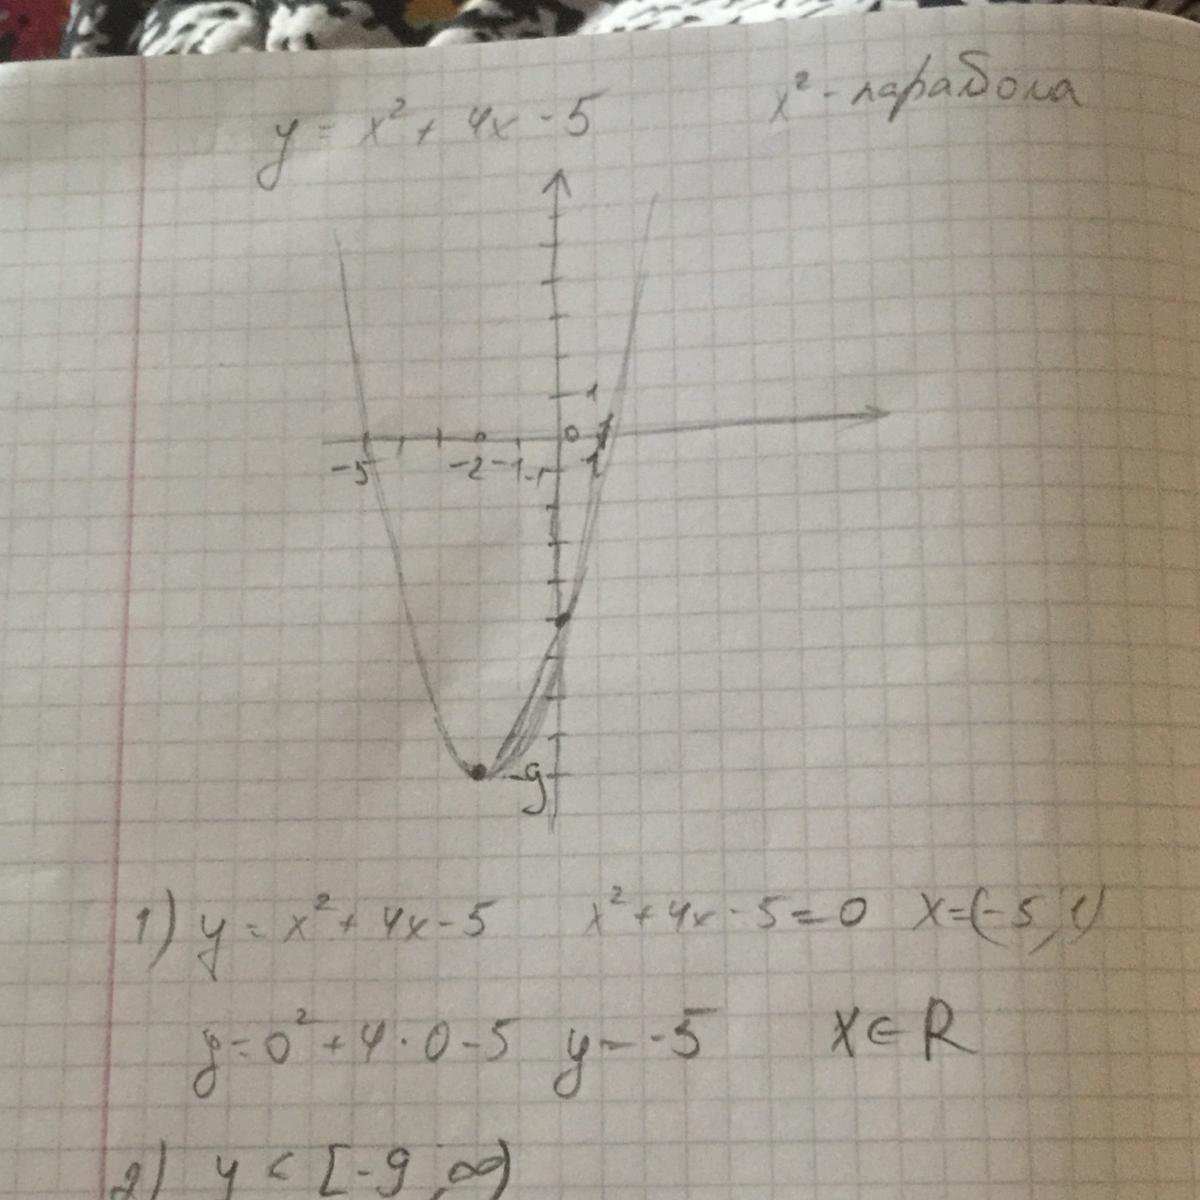 y = x² + 4x - 5
x² - парабола
1
0
-5 -2 -1 -1 1
-9
1) y = x² + 4x - 5 x² + 4x - 5 = 0 x = (-5, 1)
y = 0² + 4 · 0 - 5 y = -5 x ∈ R
2) y < [-9, ∞)